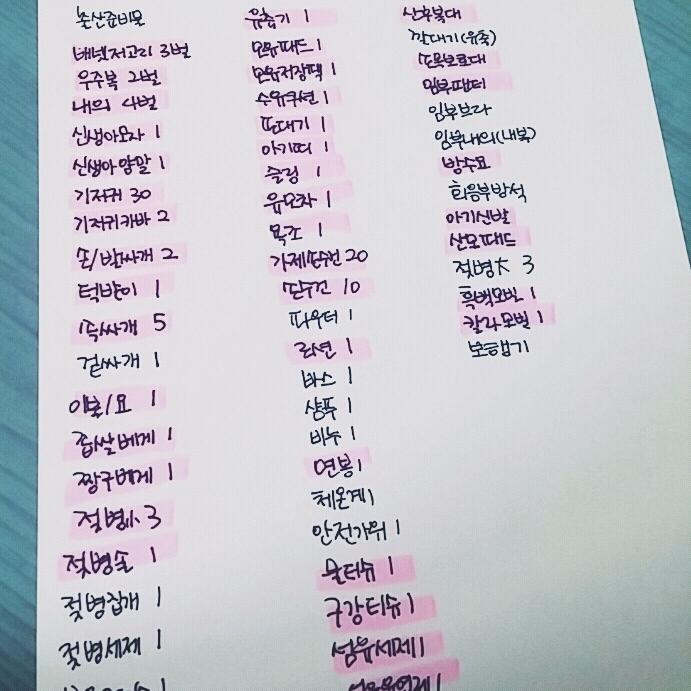 출산준비물
배냇저고리 3벌
우주복 2벌
내의 4벌
신생아모자 1
신생아양말 1
기저귀 30
기저귀카바 2
손/발싸개 2
턱받이 1
속싸개 5
겉싸개 1
이불/요 1
좁쌀베게 1
짱구베게 1
젖병小 3
젖병솔 1
젖병집개 1
젖병세제 1
유축기 1
모유패드 1
모유저장팩 1
수유쿠션 1
포대기 1
아기띠 1
슬링 1
유모차 1
욕조 1
가제손수건 20
손수건 10
파우더 1
로션 1
바스 1
샴푸 1
비누 1
면봉 1
체온계 1
안전가위 1
물티슈 1
구강티슈 1
섬유세제 1
섬유유연제 1
산후복대
깔대기(유축)
손목보호대
임부팬티
임부브라
임부내의(내복)
방수요
회음부방석
아기신발
산모패드
젖병大 3
흑백모빌 1
칼라모빌 1
보행기